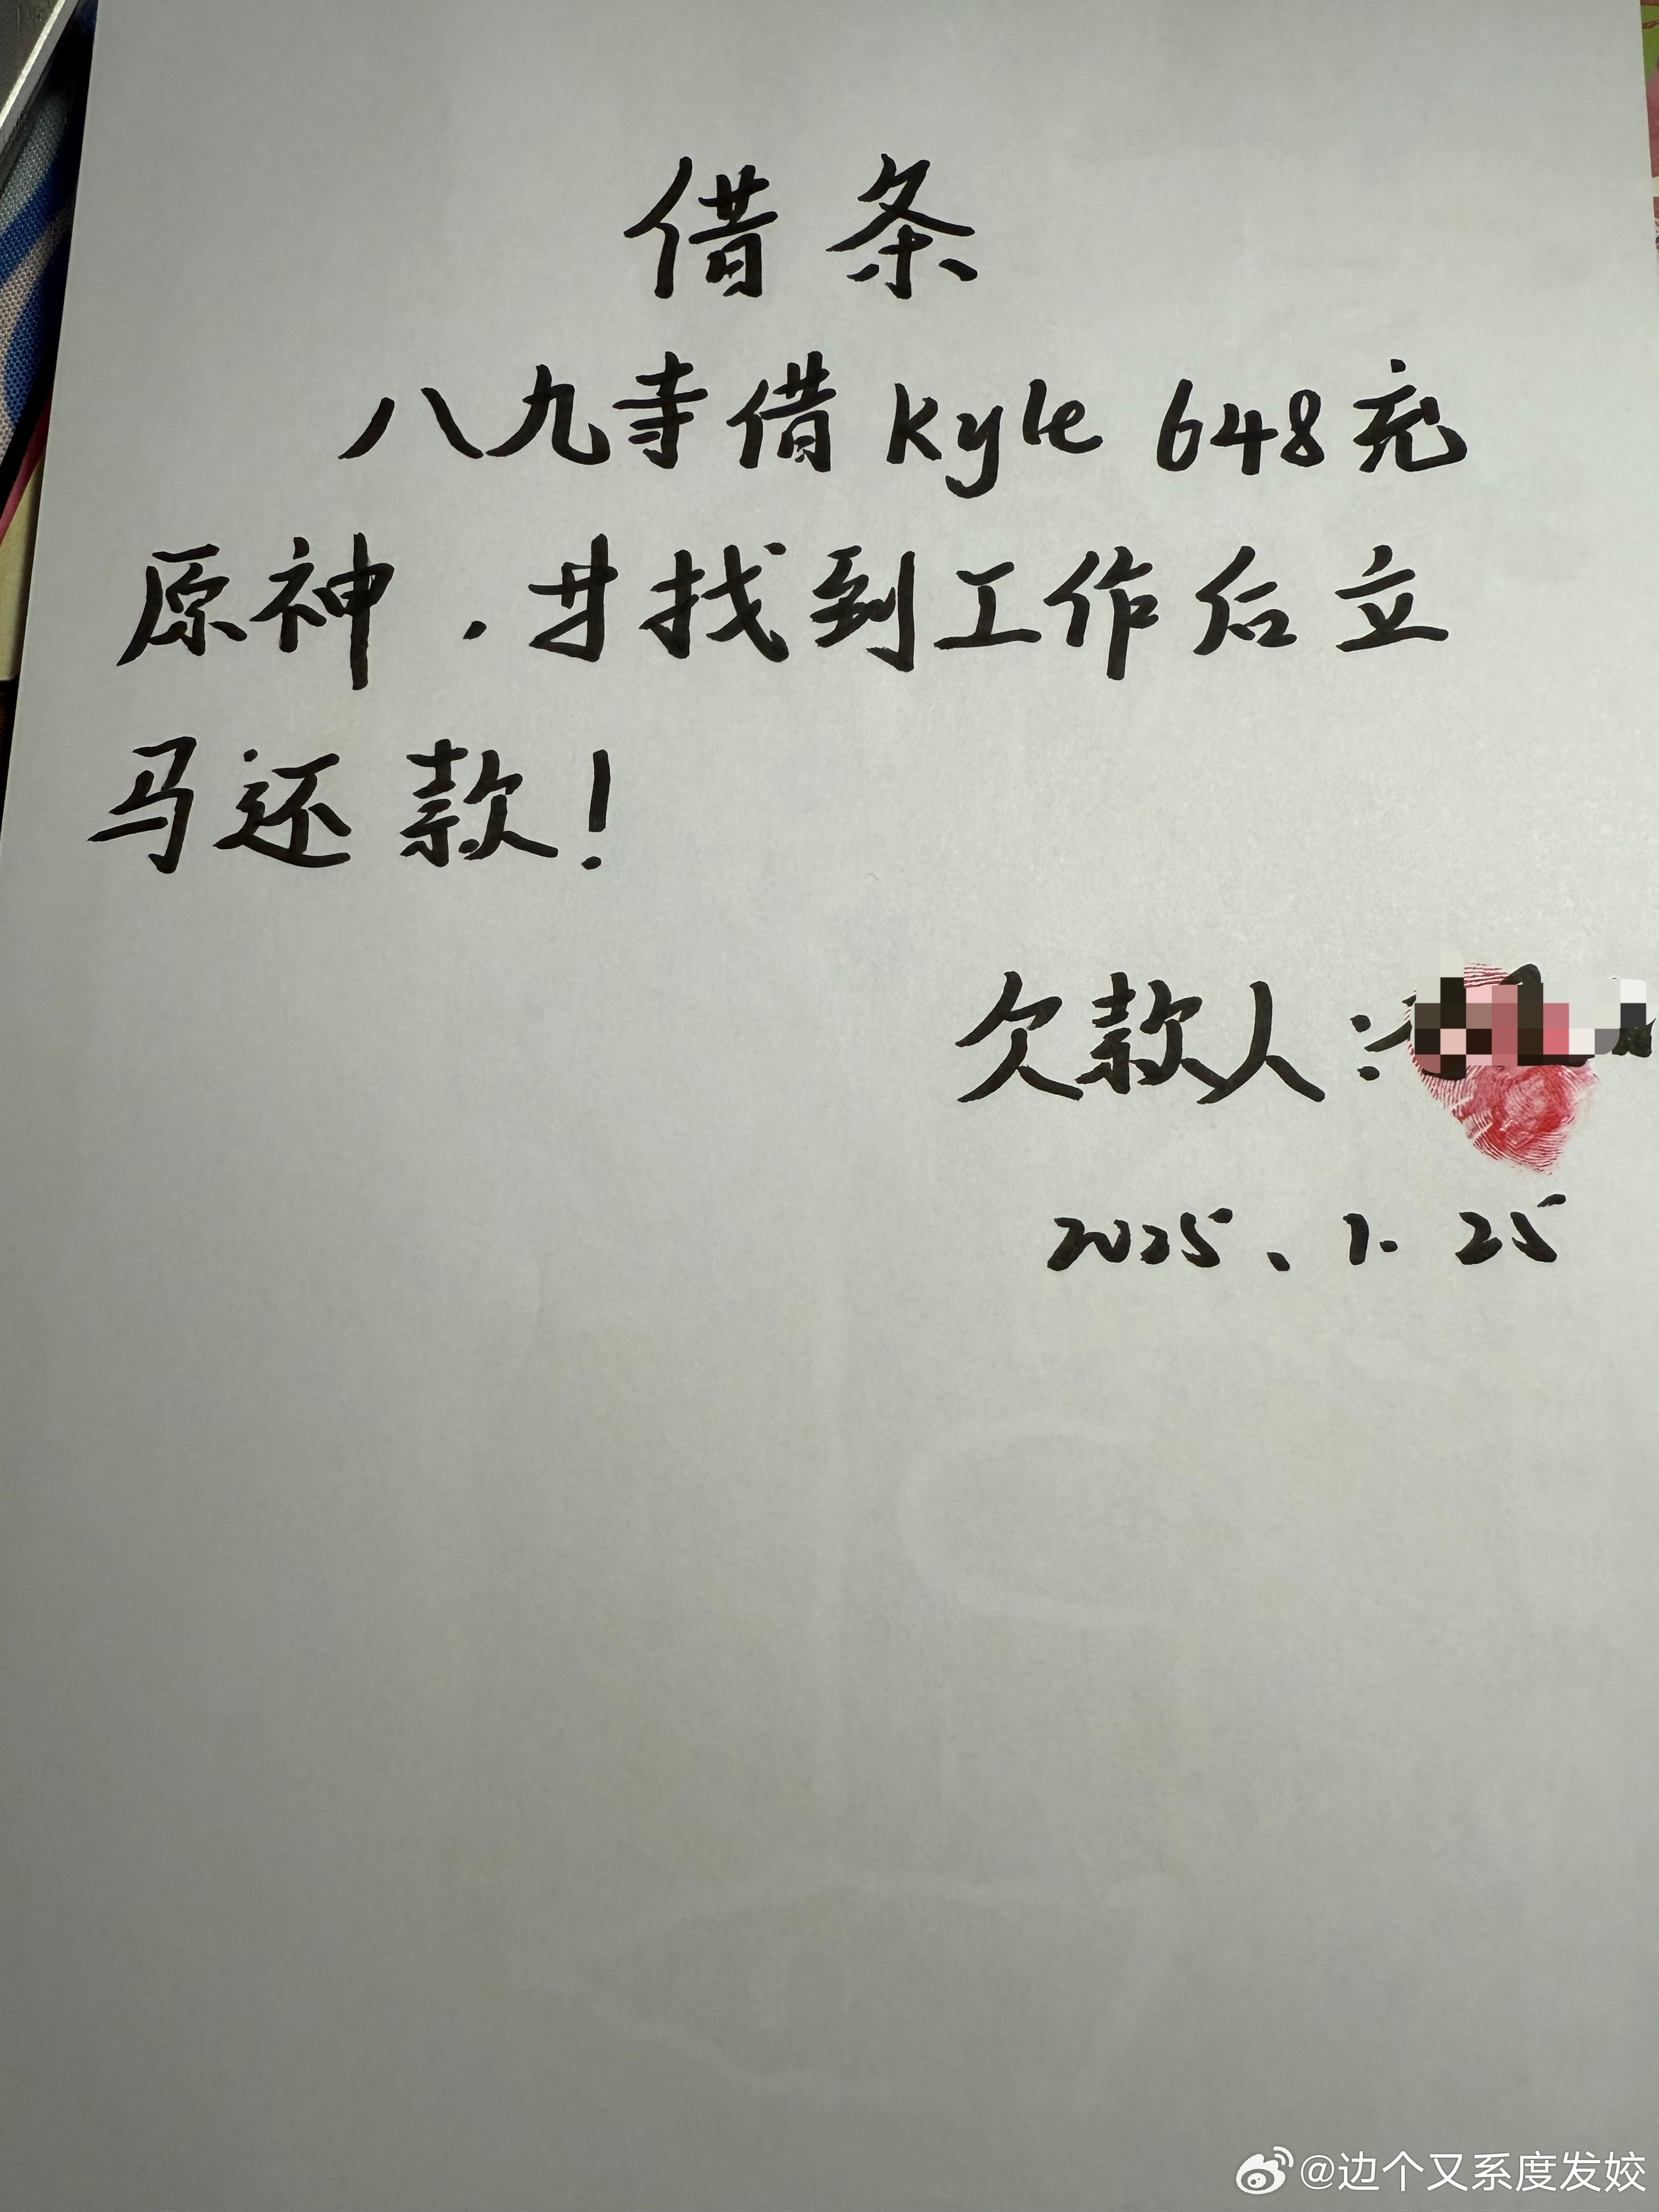 借条
八九寺借Kyle 648充
原神，并找到工作后立
马还款！
欠款人：
2025、1. 25
@边个又系度发姣